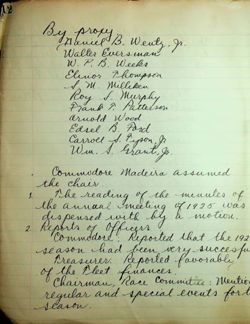 By proxy
Daniel B. Wentz, Jr.
Walter Eversman
W. P. B. Weeks
Elinor Thompson
S. M. Milliken
Roy S. Murphy
Frank T. Patterson
Arnold Wood
Edsel B. Ford
Carroll S. Tyson Jr
Wm. S. Grant, Jr.
Commodore Madeira assumed
the chair
1. The reading of the minutes of
the annual meeting of 1925 was
dispensed with by a motion.
2. Reports of Officers
Commodore: Reported that the 192
season had been very successful
Treasurer: Reported favorable
of the Fleet finances.
Chairman, Race Committee: Mentio
regular and special events for
season.